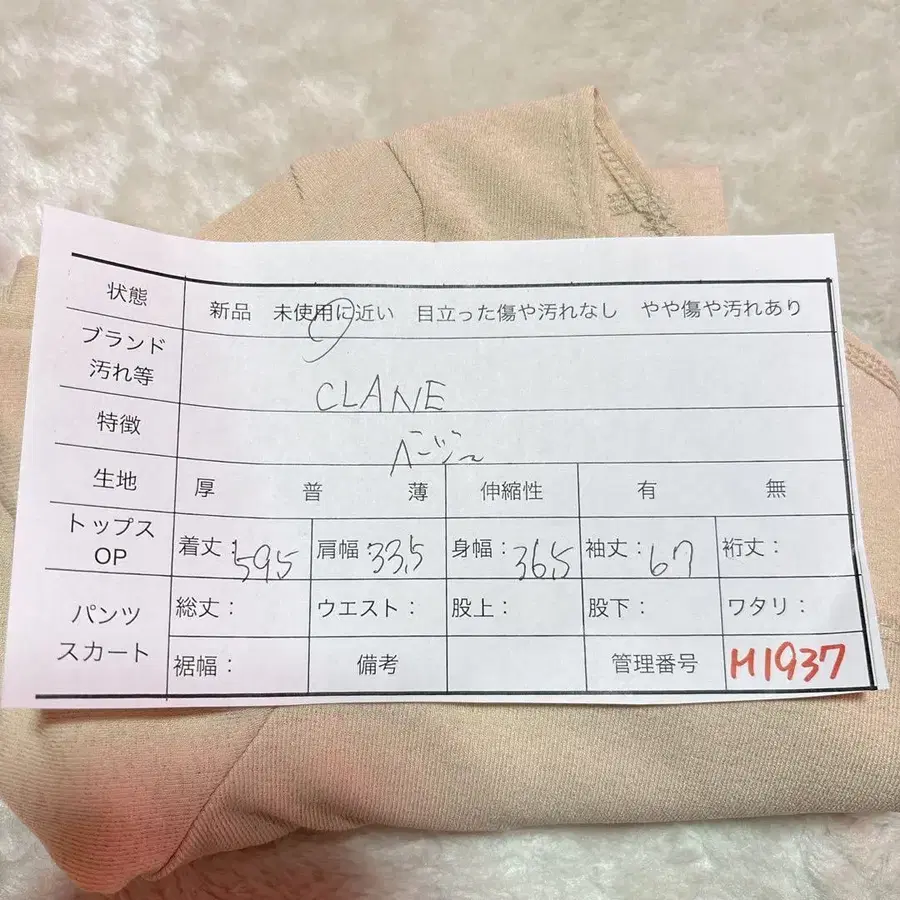 状態 新品 未使用に近い 目立った傷や汚れなし やや傷や汚れあり
ブランド
汚れ等 CLANE
特徴 ベージュ
生地 厚 普 薄 伸縮性 有 無
トップス
OP 着丈：59.5 肩幅：33.5 身幅：36.5 袖丈：67 裄丈：
パンツ
スカート 総丈： ウエスト： 股上： 股下： ワタリ：
裾幅： 備考 管理番号 M1937